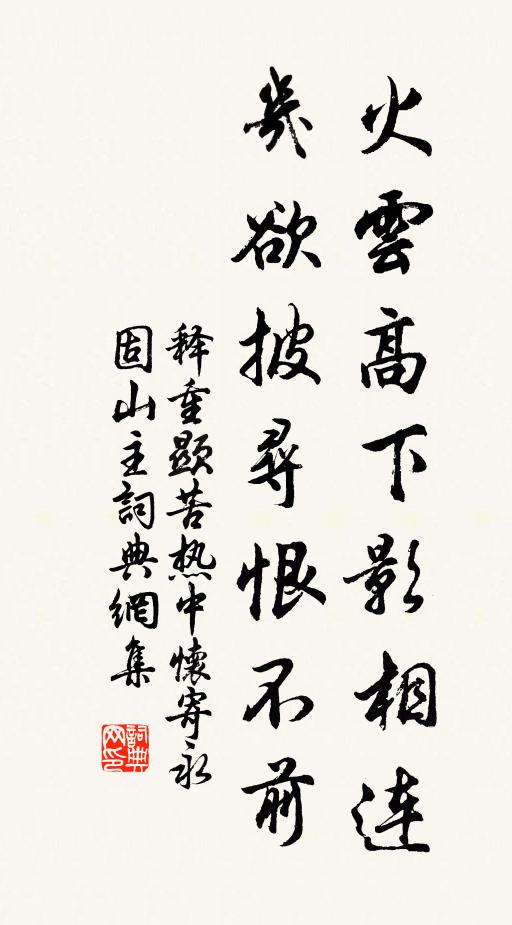 火雲高下影相連
幾欲披尋恨不前
释重顯苦热中懷寄永
固山主詞典網集
詞典
网印